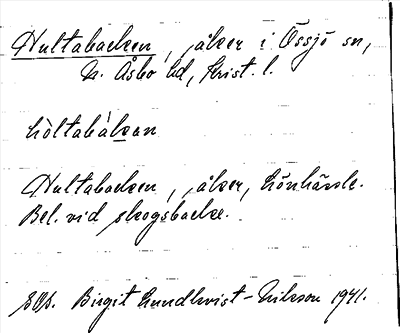 Hultabacken, åker i Össjö sn,
N. Åsbo hd, Krist. l.
hòltabákan
Hultabacken, åker, Lönhärsle.
Bel. vid skogsbacke.
Birgit Lundkvist-Nilsson 1941.